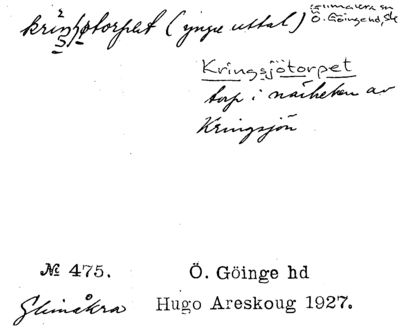 (yngre uttal)
Ö. Göinge hd, Sk
Kringsjötorpet
torp i närheten av
Kringsjön
№ 475. Ö. Göinge hd
Glimåkra Hugo Areskoug 1927.